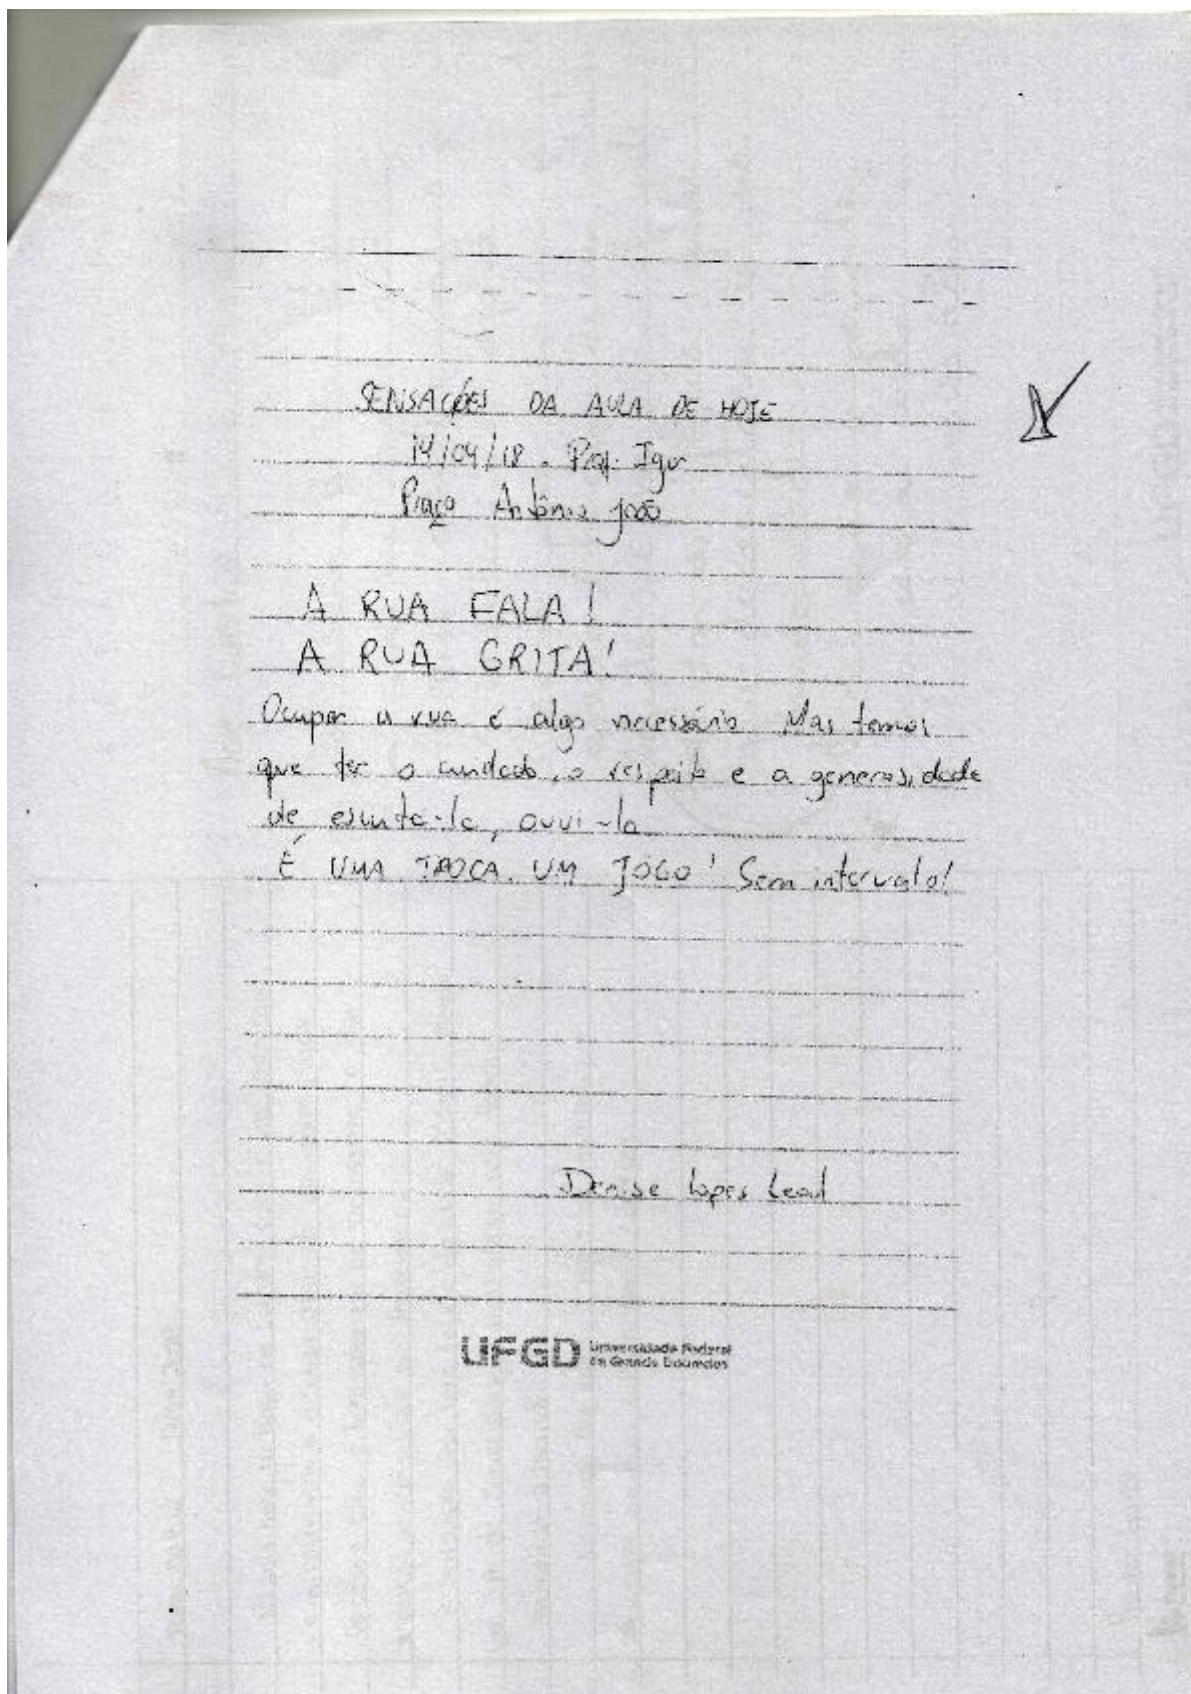 SENSAÇÕES DA AULA DE HOJE
14/04/18. Prof. Igor
Praça Antônio João
A RUA FALA!
A RUA GRITA!
Ocupar a rua é algo necessário. Mas temos
que ter o cuidado, o respeito e a generosidade
de escuta-la, ouvi-la
É UMA TROCA. UM JOGO! Sem intervalo!
Denise Lopes Leal
UFGD Universidade Federal
da Grande Dourados